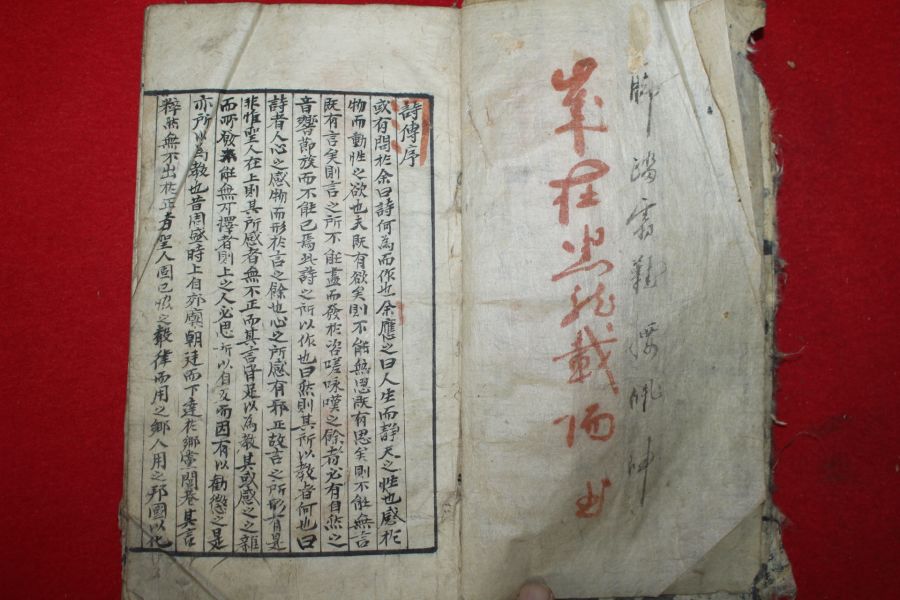 歲在黑龍載陽
詩傳序
或有問於余曰詩何為而作也余應之曰人生而靜天之性也感於
物而動性之欲也夫既有欲矣則不能無思既有思矣則不能無言
既有言矣則言之所不能盡而發於咨嗟咏嘆之餘者必有自然之
音響節族而不能已焉此詩之所以作也曰然則其所以教者何也曰
詩者人心之感物而形於言之餘也心之所感有邪正故言之所形有是
非惟聖人在上則其所感者無不正而其言皆足以為教其或感之之雜
而所發不能無可擇者則上之人必思所以自反而因有以勸懲之是
亦所以為教也昔周盛時上自郊廟朝廷而下達於鄉黨閭巷其言
粹然無不出於正者聖人固已協之聲律而用之鄉人用之邦國以化